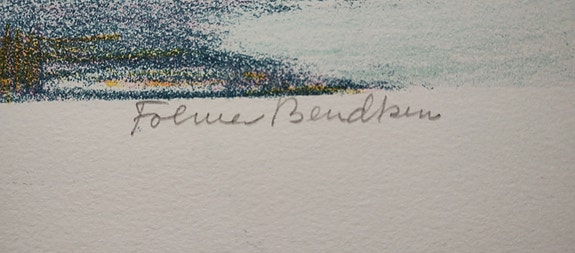 Folmer Bendtsen